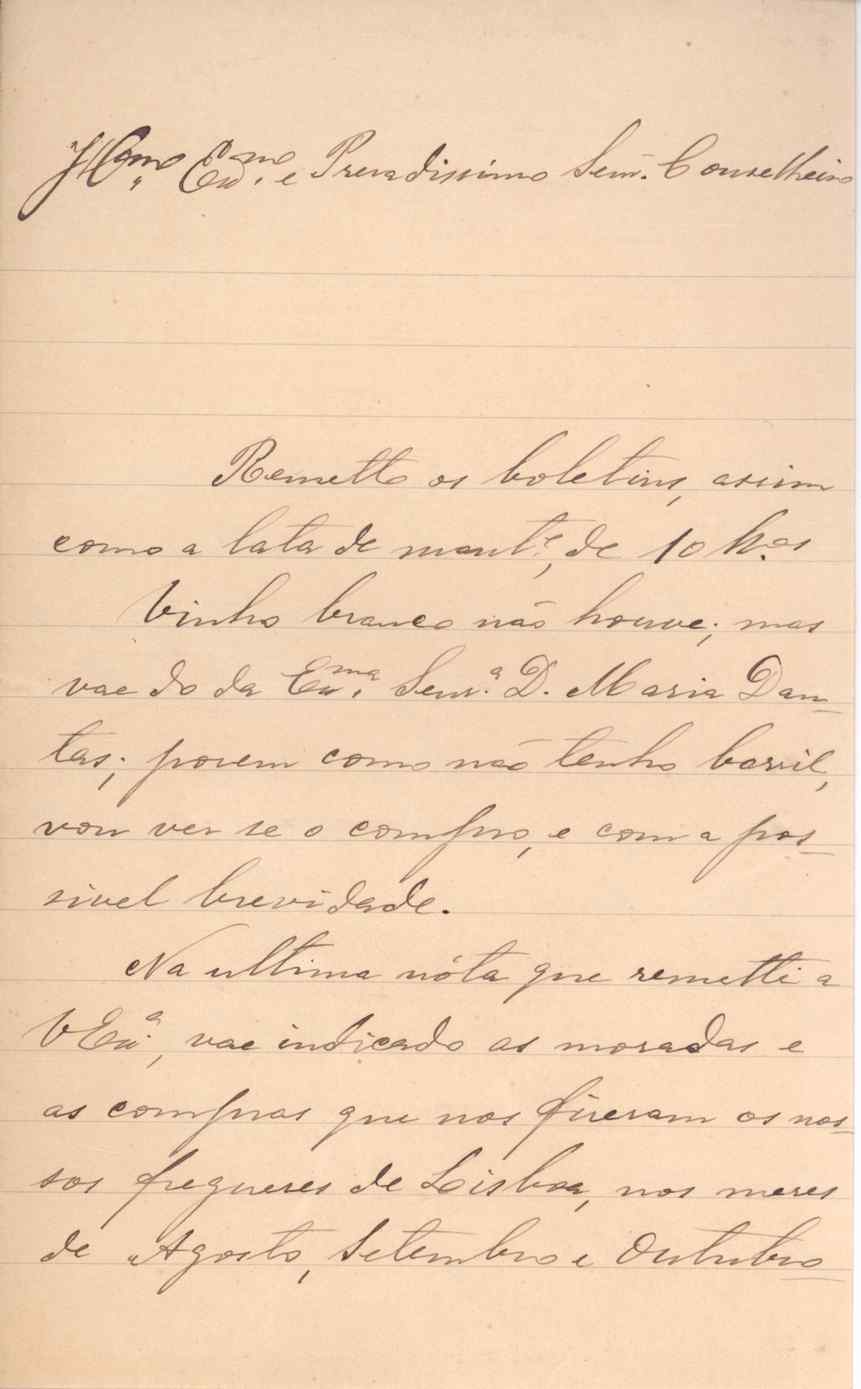 Illmo Exmo. e Presadissimo Senr. Conselheiro
Remetto os boletins, assim
como a lata de mantª, de 10 k.os
Vinho branco não houve; mas
vae do da Exma. Senr.ª D. Maria Dan-
tas; porem como não tenho barril,
vou ver se o compro, e com a pos-
sivel brevidade.
Na ultima nóta que remetti a
VExª, vae indicado as moradas e
as compras que nos fizeram os nos-
sos freguezes de Lisboa, nos mezes
de Agosto, Setembro e Outubro